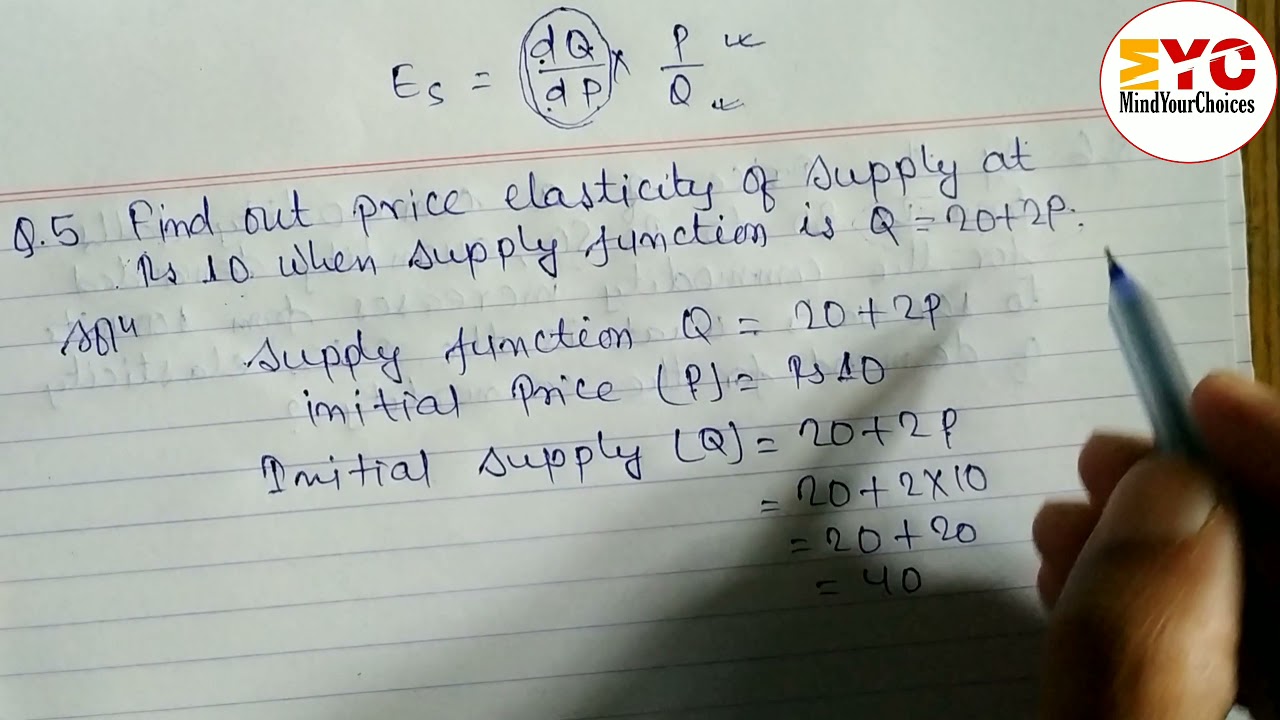 MYC
MindYourChoices
Es = dQ/dP × P/Q
Q.5 Find out price elasticity of supply at
Rs 10 when supply function is Q = 20+2P.
Solⁿ
Supply function Q = 20+2P
initial Price (P) = Rs 10
Initial supply (Q) = 20+2P
= 20+2×10
= 20+20
= 40